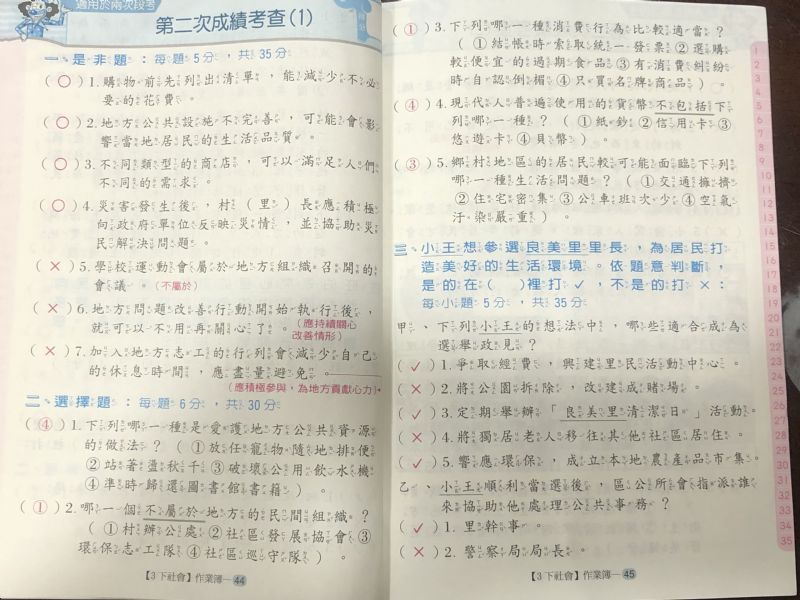 適用於兩次段考
第二次成績考查(1)
一、是非題：每題5分，共35分
(○)1.購物前先列出清單，能減少不必
要的花費。
(○)2.地方公共設施不完善，可能會影
響當地居民的生活品質。
(○)3.不同類型的商店，可以滿足人們
不同的需求。
(○)4.災害發生後，村（里）長應積極
向政府單位反映災情，並協助災
民解決問題。
(×)5.學校運動會屬於地方組織召開的
會議。(不屬於)
(×)6.地方問題改善行動開始執行後，
就可以不用再關心了。(應持續關心
改善情形)
(×)7.加入地方志工的行列會減少自己
的休息時間，應盡量避免。
(應積極參與，為地方貢獻心力)
二、選擇題：每題6分，共30分
(④)1.下列哪一種是愛護地方公共資源
的做法？（①放任寵物隨地排便
②站著盪秋千③破壞公用飲水機
④準時歸還圖書館書籍）。
(①)2.哪一個不屬於地方的民間組織？
（①村辦公處②社區發展協會③
環保志工隊④社區巡守隊）。
【3下社會】作業簿—44
(①)3.下列哪一種消費行為比較適當？
（①結帳時索取統一發票②選購
較便宜的過期食品③有消費糾紛
時自認倒楣④只買名牌商品）。
(④)4.現代人普遍使用的貨幣不包括下
列哪一種？（①紙鈔②信用卡③
悠遊卡④貝幣）。
(③)5.鄉村地區的居民較可能面臨下列
哪一種生活問題？（①交通擁擠
②住宅密集③公車班次少④空氣
汙染嚴重）。
三、小王想參選良美里里長，為居民打
造美好的生活環境。依題意判斷，
是的在（　）裡打✓，不是的打×：
每小題5分，共35分
甲、下列小王的想法中，哪些適合成為
選舉政見？
(✓)1.爭取經費，興建里民活動中心。
(×)2.將公園拆除，改建成賭場。
(✓)3.定期舉辦「良美里清潔日」活動。
(×)4.將獨居老人移往其他社區居住。
(✓)5.響應環保，成立本地農產品市集。
乙、小王順利當選後，區公所會指派誰
來協助他處理公共事務？
(✓)1.里幹事。
(×)2.警察局局長。
【3下社會】作業簿—45
1
2
3
4
5
6
7
8
9
10
11
12
13
14
15
16
17
18
19
20
21
22
23
24
25
26
27
28
29
30
31
32
33
34
35